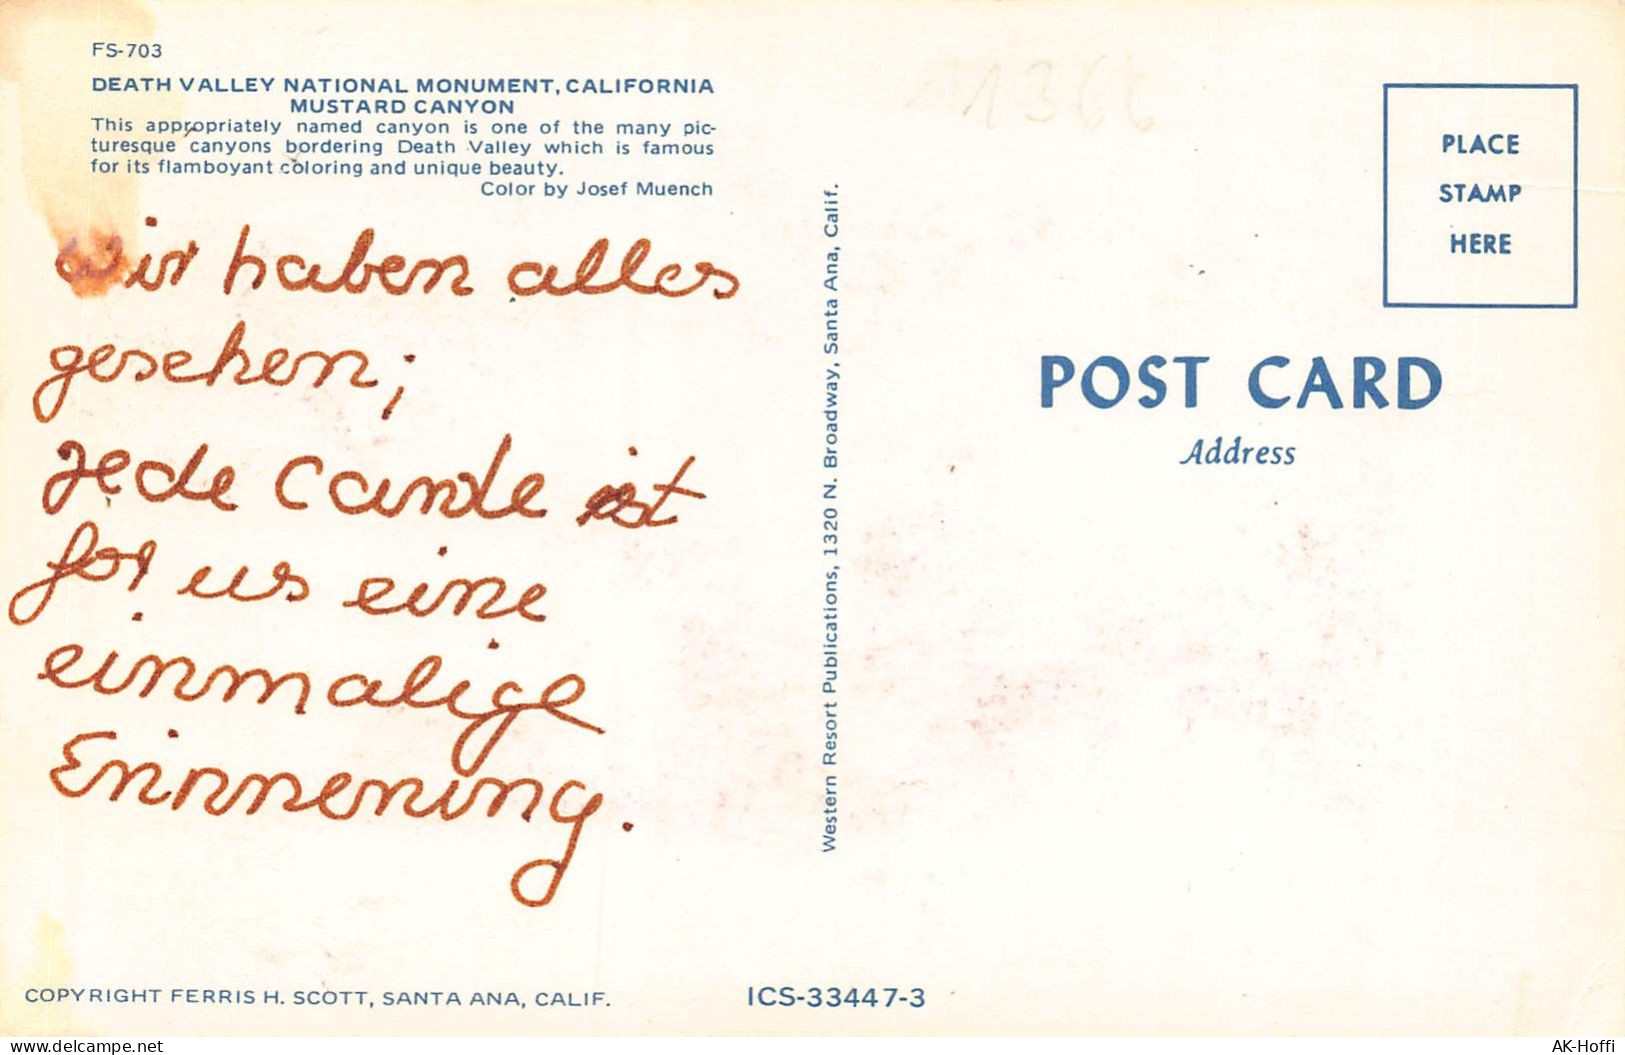 FS-703
DEATH VALLEY NATIONAL MONUMENT, CALIFORNIA
MUSTARD CANYON
This appropriately named canyon is one of the many pic-
turesque canyons bordering Death Valley which is famous
for its flamboyant coloring and unique beauty.
Color by Josef Muench
Wir haben alles
gesehen;
jede Carde ist
for us eine
einmalige
Erinnerung.
COPYRIGHT FERRIS H. SCOTT, SANTA ANA, CALIF.
Western Resort Publications, 1320 N. Broadway, Santa Ana, Calif.
ICS-33447-3
1366
PLACE
STAMP
HERE
POST CARD
Address
AK-Hoffi
delcampe.net